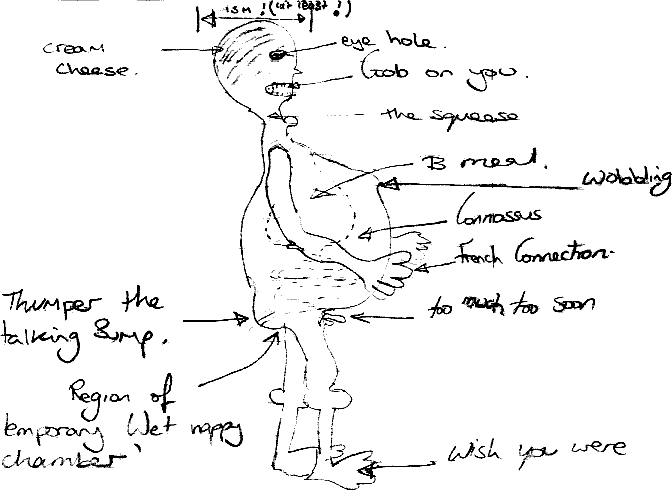 15M!(at least!)
cream
cheese.
eye hole.
Gob on you.
the squeese
B meal.
wobbling
Colossus
French Connection.
Thumper the
talking Bump.
too much too soon
Region of
temporary 'Wet nappy
chamber'
Wish you were